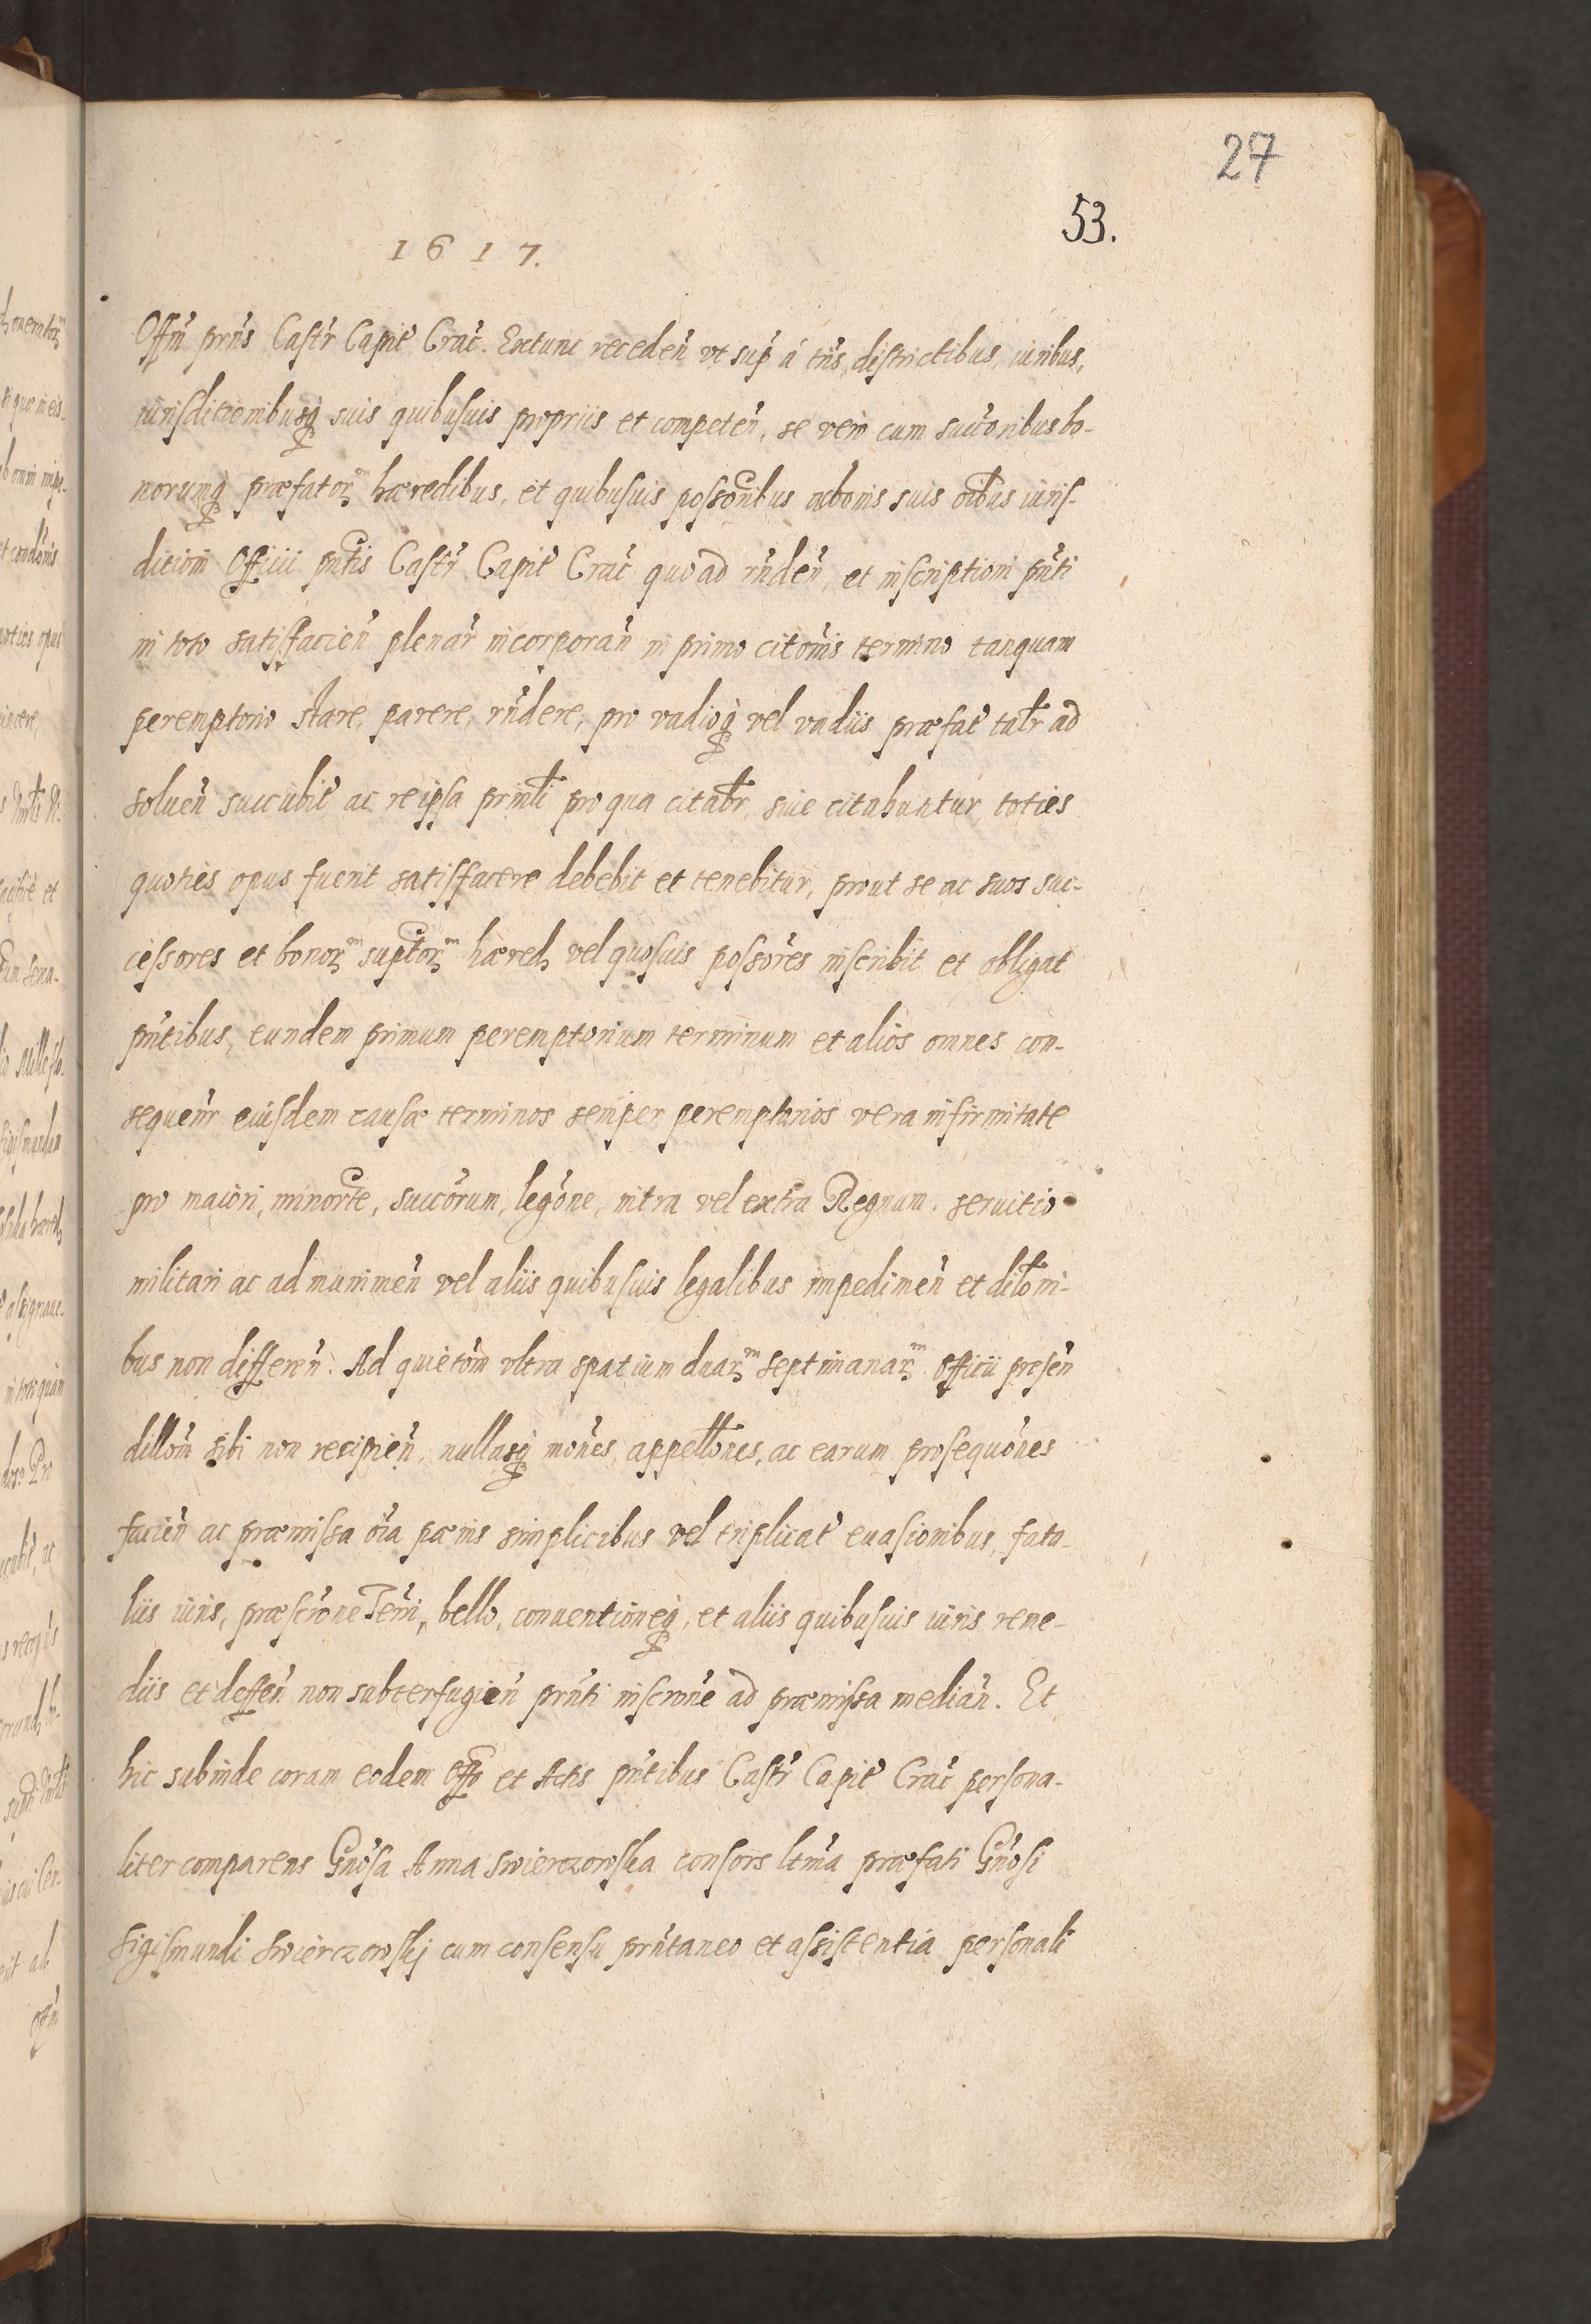 27
53.
1617.
Offm̃ prñs Castr̃ Capit̃ Crac̃. Extunc recedeñ vt sup̃ á tr̃is, districtibus, iuribus,
iurisditionibusq̃ suis quibusuis propriis et competeñ, se vero cum succoribus bo-
norumq̃ præfator̃m hæredibus, et quibusuis possõribus ac bonis suis oĩbus iuris-
ditioni Officii pñtis Castr̃ Capit̃ Crac̃ quo ad rñdeñ, et inscriptioni pñti
in toto satisfacieñ plenar̃ incorporañ in primo citõnis termino tanquam
peremptorio stare, parere, rñdere, pro vadioq̃ vel vadiis præfat̃ tatr̃ ad
solueñ succubit̃ ac reipsa prinli pro qua citabr̃, siue citabuntur toties
quoties opus fuerit satisfacere debebit et tenebitur, prout se ac suos suc-
cessores et bonor̃m suptor̃m hæred, vel quosuis possõres inscribit et obligat
pñtibus, eundem primum peremptorium terminum et alios omnes con-
sequeñr eiusdem causæ terminos semper peremptorios vera infirmitate
pro maiori, minorte, succõrum, legõne, intra vel extra Regnum, seruitio
militari ac ad munimeñ vel aliis quibusuis legalibus impedimeñ et dilõni-
bus non differeñ. Ad quietõm vltra spatium duar̃m septimanar̃m officii preseñ
dillõm sibi non recipieñ, nullasq̃ mõnes, appellõnes, ac earum prosequõnes
facieñ ac præmissa oĩa pænis simplicibus vel triplicat̃ euasionibus, fata-
liis iuris, præscrõne Terri, bello, conuentioneq̃, et aliis quibusuis iuris reme-
diis et deffeñ non subterfugieñ prñti inscrõne ad præmissa mediañ. Et
hic subinde coram eodem Offo et Actis pñtibus Castr̃ Capit̃ Crac̃ persona-
liter comparens Gnõsa Anna Swierczowska consors ltm̃a præfati Gnõsi
Sigismundi Swierczowskj cum consensu prñtaneo et assistentia personali